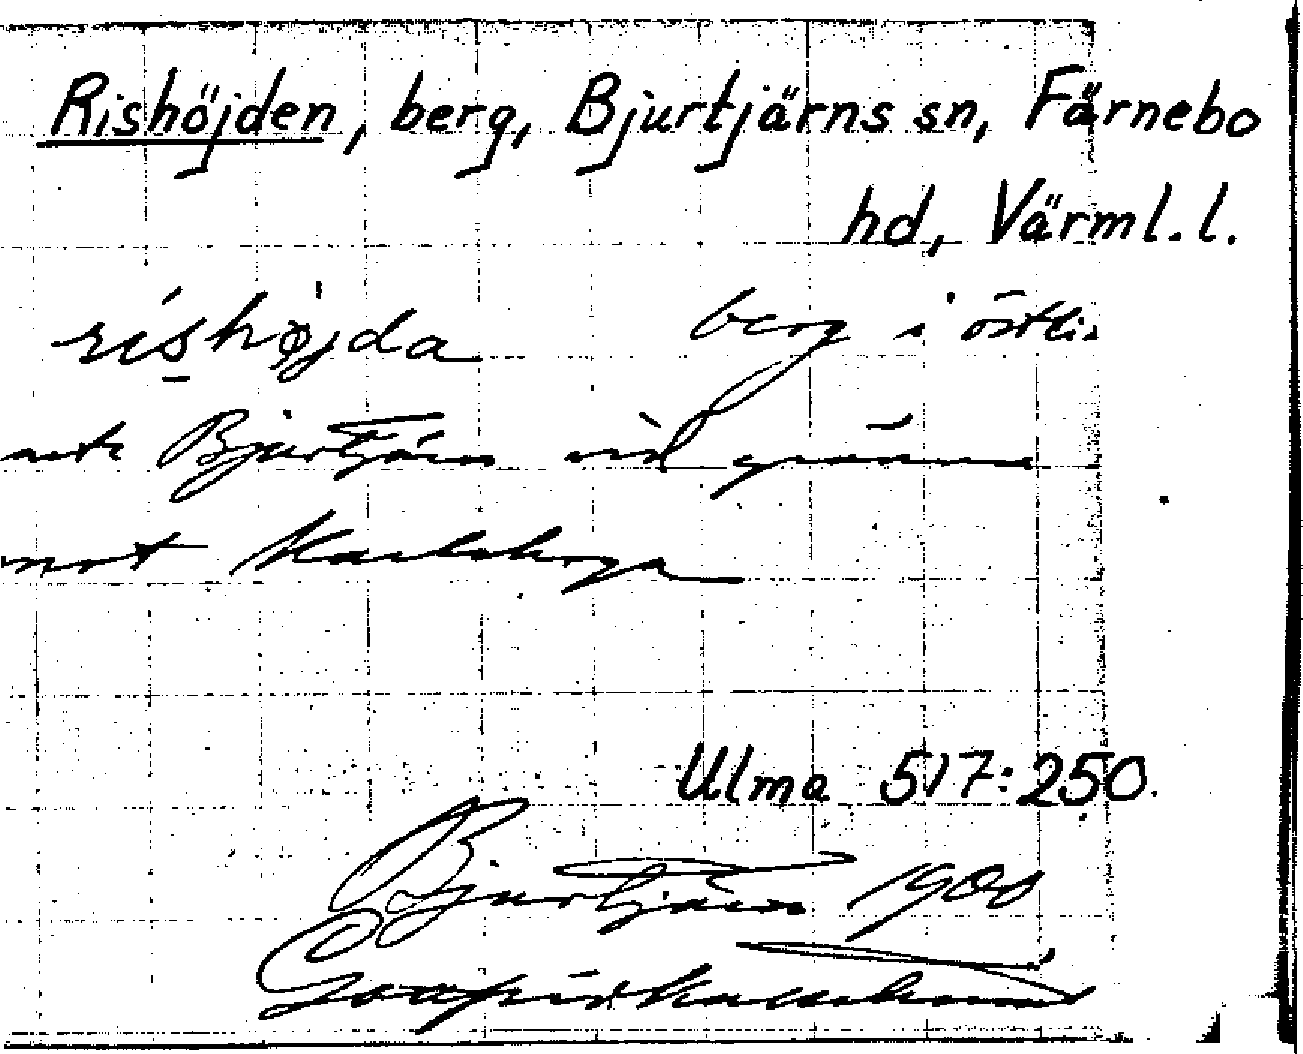 Rishöjden, berg, Bjurtjärns sn, Färnebo
hd, Värml. l.
rishøjda berg i östli-
Bjurtjärn vid gränsen
mot Karlskoga
Ulma 517:250.
Bjurtjärn 1900